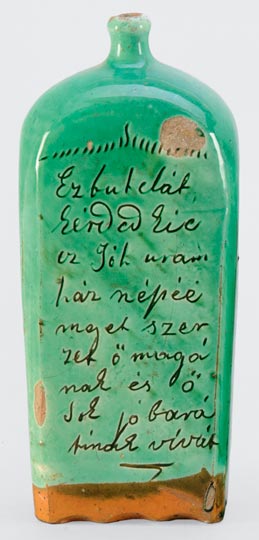 Ez butelát
kérded kié
ez Jót uram
ház népéé
meget szer
zet ö magá
nak és ö
Sok jó bará
tinak vívát